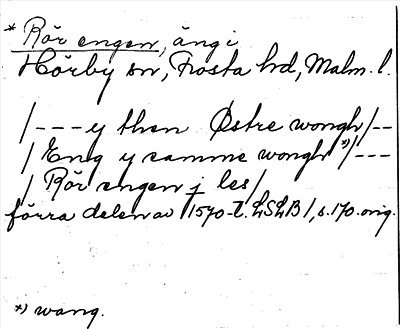 * Rör engen, äng i
Hörby sn, Frosta hd, Malm. l.
/---y then Østre wongh/--
/ Eng y samme wongh *)/---
/ Rör engen j les/
förra delen av 1570-t. LSLB 1, s. 170. orig.
*) wang.